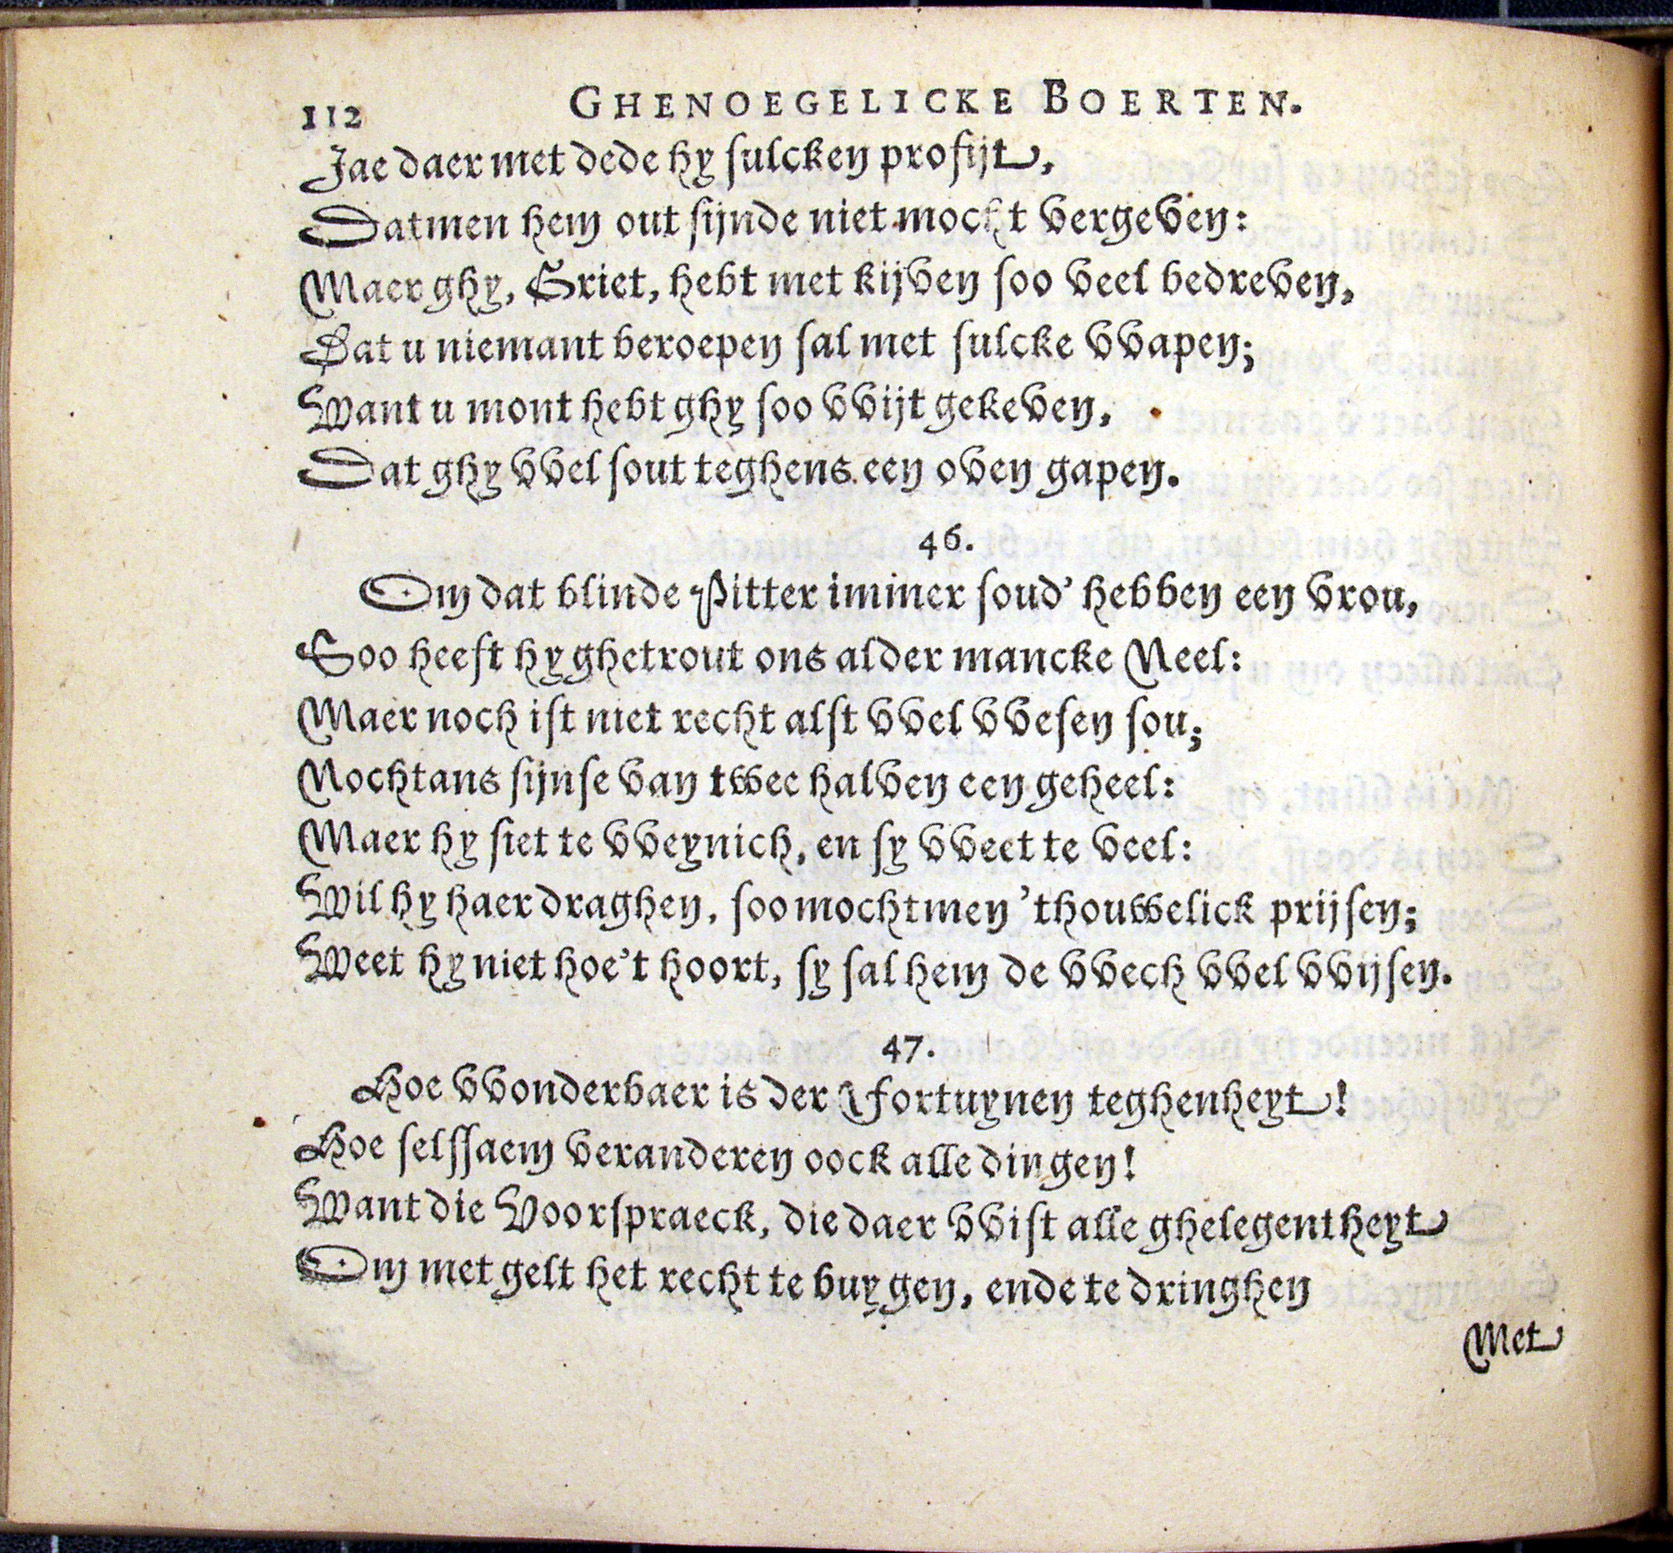 112 GHENOEGELICKE BOERTEN.
Jae daer met dede hy sulcken profijt,
Datmen hem out sijnde niet mocht vergeven:
Maer ghy, Griet, hebt met kijven soo veel bedreven,
Dat u niemant beroepen sal met sulcke vvapen;
Want u mont hebt ghy soo vvijt gekeven,
Dat ghy vvel sout teghens een oven gapen.
46.
Om dat blinde Pitter immer soud' hebben een vrou,
Soo heeft hy ghetrout ons alder mancke Neel:
Maer noch ist niet recht alst vvel vvesen sou;
Nochtans sijnse van twee halven een geheel:
Maer hy siet te vveynich, en sy vveet te veel:
Wil hy haer draghen, soo mochtmen 'thouwelick prijsen;
Weet hy niet hoe't hoort, sy sal hem de vvech vvel vvijsen.
47.
Hoe vvonderbaer is der Fortuynen teghenheyt!
Hoe selssaem veranderen oock alle dingen!
Want die Voorspraeck, die daer vvist alle ghelegentheyt
Om met gelt het recht te buygen, ende te dringhen
Met